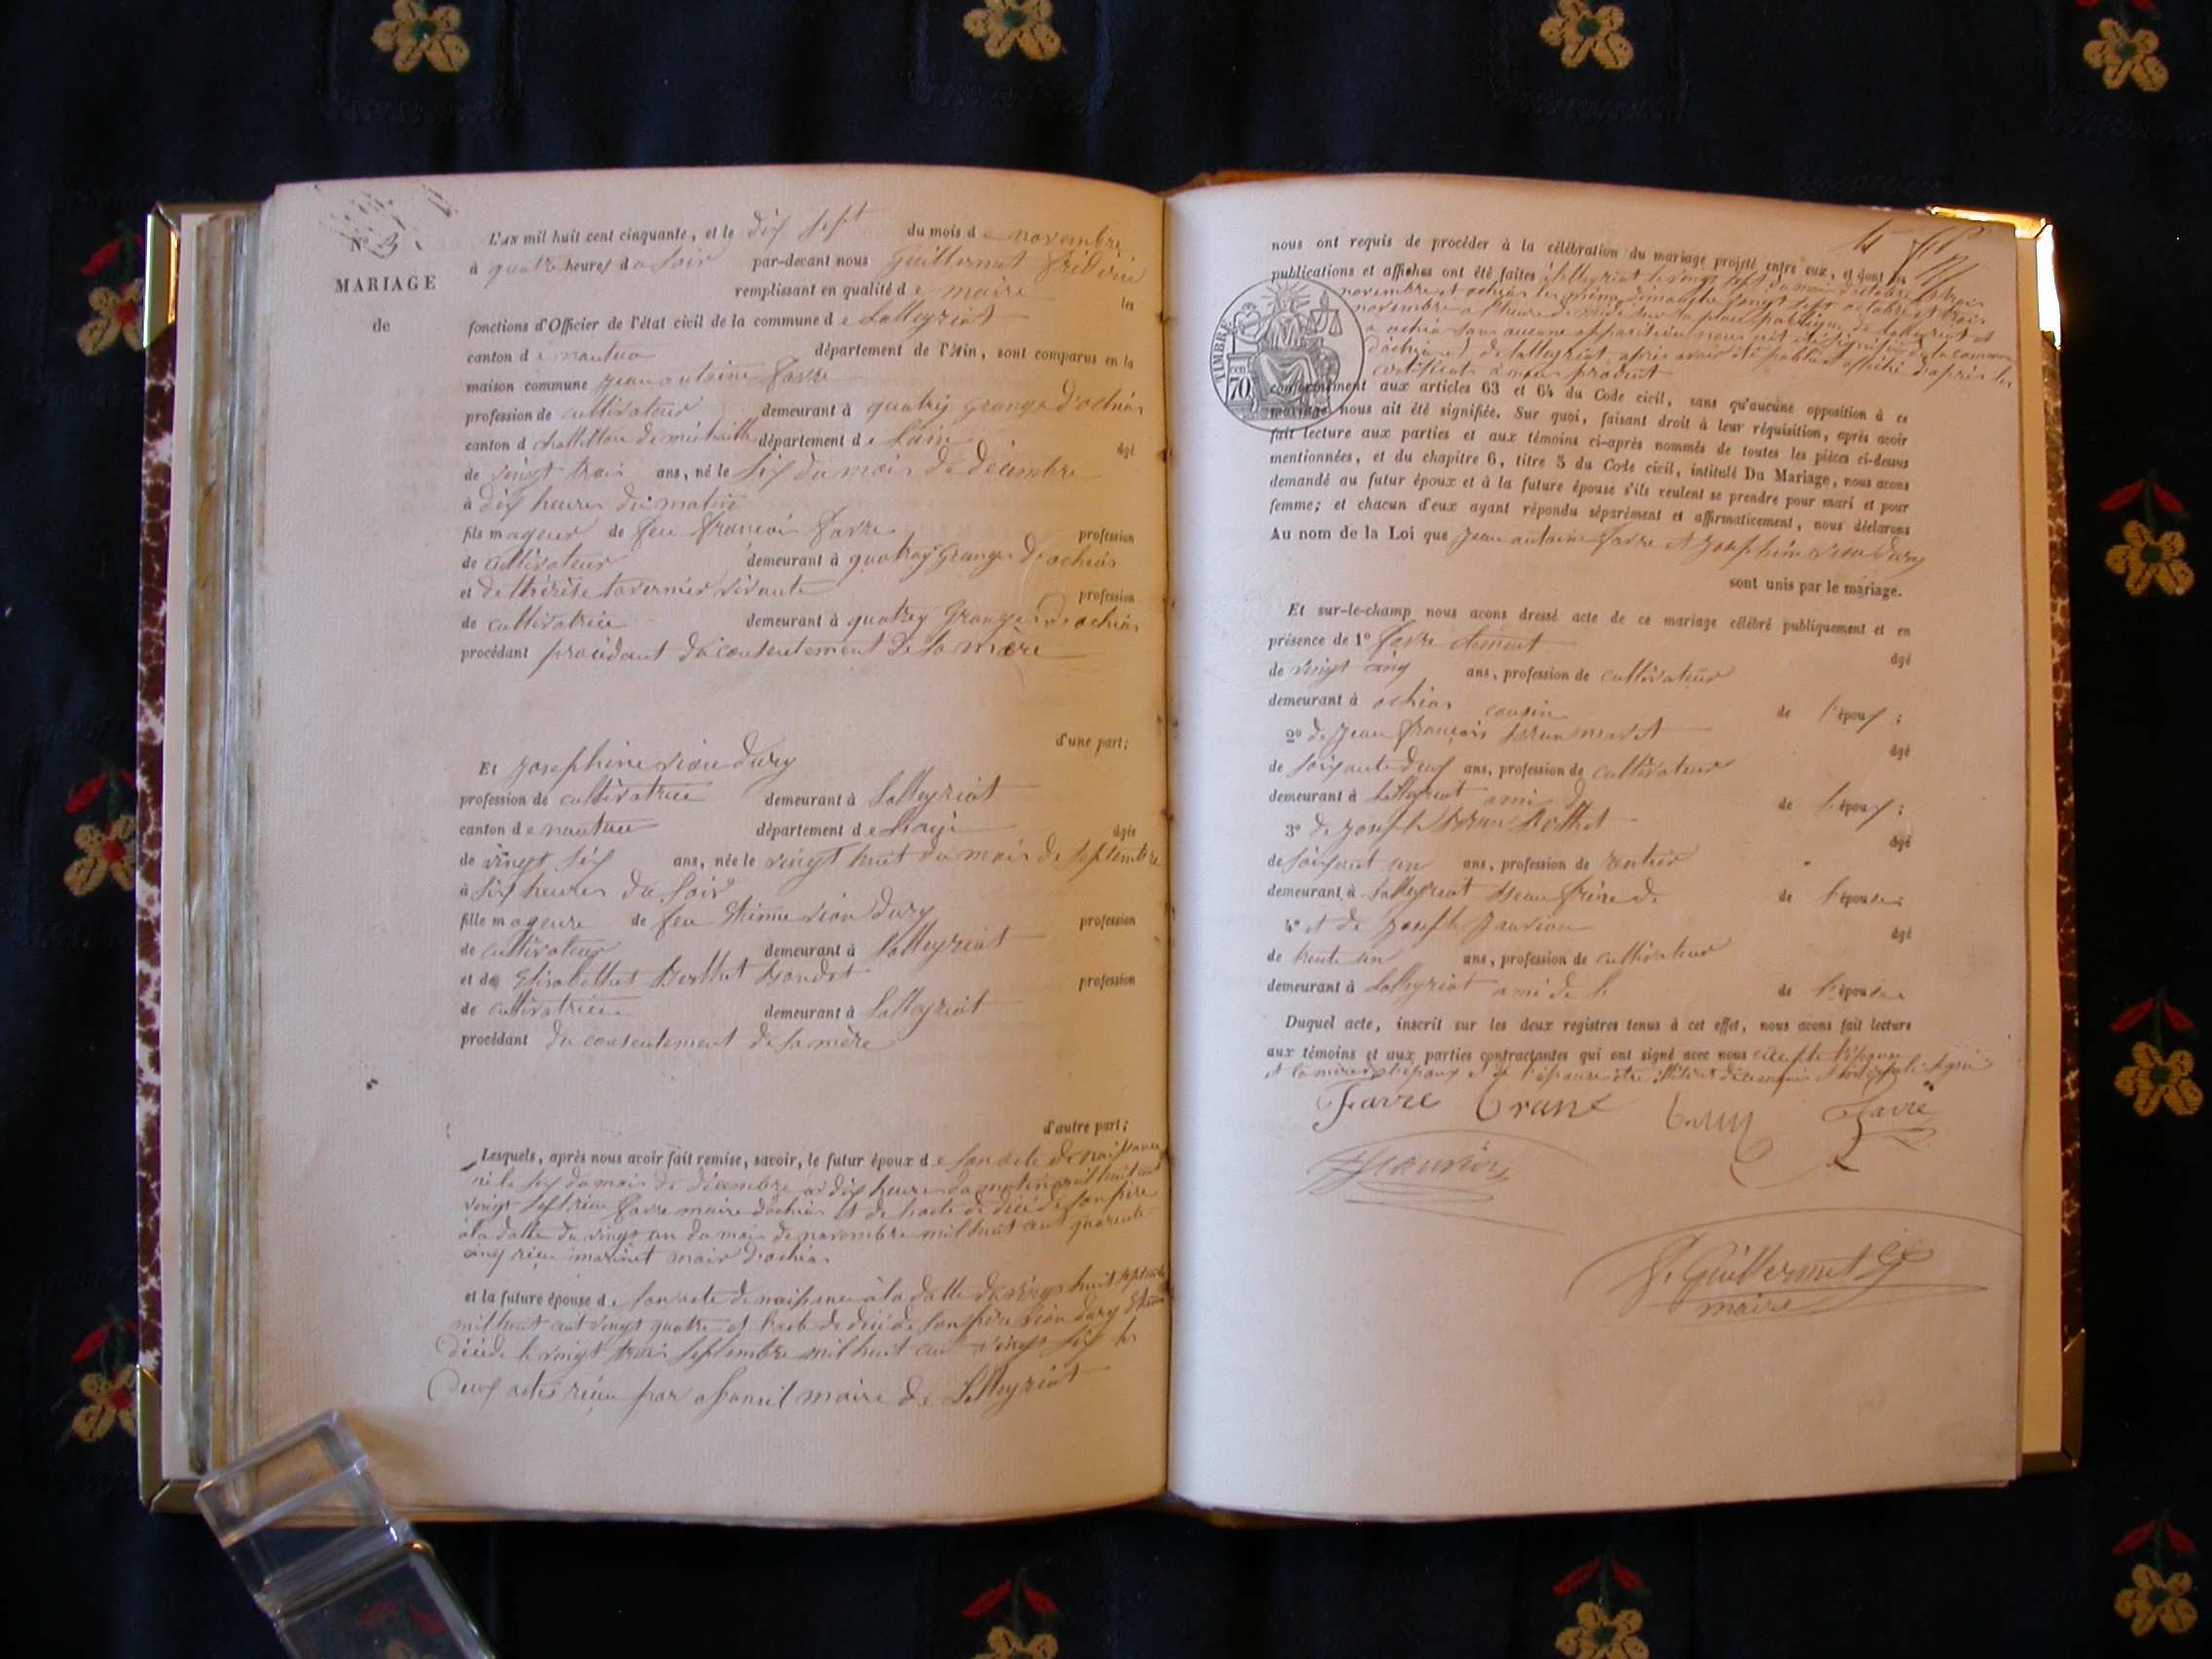 N° 3
MARIAGE
de
L'AN mil huit cent cinquante, et le dix sept du mois de novembre
à quatre heures du soir par-devant nous Guillermet frédéric
remplissant en qualité de maire les
fonctions d'Officier de l'état civil de la commune de Lalleyriat
canton de nantua département de l'Ain, sont comparus en la
maison commune jean antoine favre
profession de cultivateur demeurant à quatrij Granges d'ochias
canton d chatillon de michaille département de Lain âgé
de vingt trois ans, né le six du mois de décembre
à dix heures du matin
fils mageur de feu françois favre profession
de cultivateur demeurant à quatray Granges d'ochias
et de thérèse tavernier vivante profession
de cultivatrice demeurant à quatrey Granges d'ochias
procédant procédant du consentement de sa mère
d'une part;
Et josephine vion dury
profession de cultivatrice demeurant à Lalleyriat
canton de nantua département de âgée
de vingt six ans, née le vingt huit du mois de septembre
à six heures du soir
fille mageure de feu Etienne vion dury profession
de cultivateur demeurant à Lalleyriat
et de Elisabethet Berthet Bondet profession
de cultivatrice demeurant à Lalleyriat
procédant du consentement de sa mère
d'autre part;
Lesquels, après nous avoir fait remise, savoir, le futur époux de son acte de naissance
né le six du mois de décembre à dix heures du matin mil huit cent
vingt sept réçu favre maire d'ochias et de l'acte de décé de son père
à la datte du vingt un du mois de novembre mil huit cent quarente
cinq réçu marinet mair d'ochias
et la future épouse de son acte de naissance à la datte du vingt huit septembre
mil huit cent vingt quatre et l'acte de décé de son père vion dury Etienne
décédé le vingt trois septembre mil huit cent vingt six les
deux actes réçu par maire de Lalleyriat
nous ont requis de procéder à la célébration du mariage projeté entre eux, et dont les
publications et affiches ont été faites à Lalleyriat le vingt sept du mois d'octobre et trois
novembre et ochias les même dimanche vingt sept octobre et trois
novembre à l'heure de midi sur la place publique de Lalleyriat et
à ochias sans aucune opposition nous ait été signifié de la commune
d'ochias et de Lalleyriat après avoir été publié et affiché d'après les
certificats à nous produit
conformément aux articles 63 et 64 du Code civil, sans qu'aucune opposition à ce
mariage nous ait été signifiée. Sur quoi, faisant droit à leur réquisition, après avoir
fait lecture aux parties et aux témoins ci-après nommés de toutes les pièces ci-dessus
mentionnées, et du chapitre 6, titre 5 du Code civil, intitulé Du Mariage, nous avons
demandé au futur époux et à la future épouse s'ils veulent se prendre pour mari et pour
femme; et chacun d'eux ayant répondu séparément et affirmativement, nous déclarons
Au nom de la Loi que jean antoine favre et josephine vion dury
sont unis par le mariage.
TIMBRE
70 cent
Et sur-le-champ nous avons dressé acte de ce mariage célébré publiquement et en
présence de 1° favre clément âgé
de vingt cinq ans, profession de cultivateur
demeurant à ochias cousin de l'époux;
2° de jean françois brun maret âgé
de soixante deux ans, profession de cultivateur
demeurant à Lalleyriat ami d de l'époux;
3° de joseph brun Bothet âgé
de soixant un ans, profession de rentier
demeurant à Lalleyriat beau frère de de l'épouse;
4° et de joseph jauvion âgé
de trente un ans, profession de cultivateur
demeurant à Lalleyriat ami de l de l'épouse
Duquel acte, inscrit sur les deux registres tenus à cet effet, nous avons fait lecture
aux témoins et aux parties contractantes qui ont signé avec nous excepté l'épouse
et la mère de l'époux et de l'épouse
Favre brun brun favre
jauvion
f. Guillermet
maire